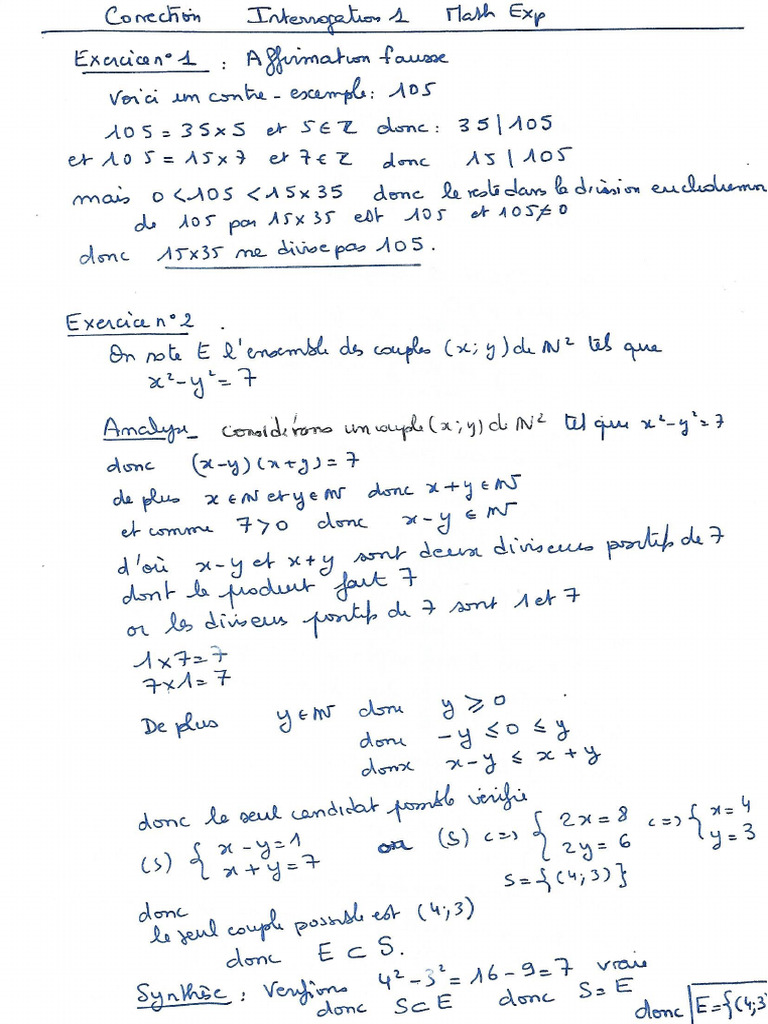 Correction Interrogation 1 Math Exp
Exercice n°1 : Affirmation fausse
Voici un contre-exemple: 105
105 = 35×5 et 5∈ℤ donc: 35|105
et 105 = 15×7 et 7∈ℤ donc 15|105
mais 0<105<15×35 donc le reste dans la division euclidienne
de 105 par 15×35 est 105 et 105≠0
donc 15×35 ne divise pas 105.
Exercice n°2.
On note E l'ensemble des couples (x;y) de ℕ² tels que
x²-y²=7
Analyse_ considérons un couple (x;y) de ℕ² tel que x²-y²=7
donc (x-y)(x+y)=7
de plus x∈ℕ et y∈ℕ donc x+y∈ℕ
et comme 7>0 donc x-y∈ℕ
d'où x-y et x+y sont deux diviseurs positifs de 7
dont le produit fait 7
or les diviseurs positifs de 7 sont 1 et 7
1×7=7
7×1=7
De plus y∈ℕ donc y⩾0
donc -y⩽0⩽y
donc x-y⩽x+y
donc le seul candidat possible vérifie
(S) { x-y=1 x+y=7 or (S) <=> { 2x=8 2y=6 <=> { x=4 y=3
S={(4;3)}
donc
le seul couple possible est (4;3)
donc E⊂S.
Synthèse: Vérifions 4²-3²=16-9=7 vraie
donc S⊂E donc S=E donc E={(4;3